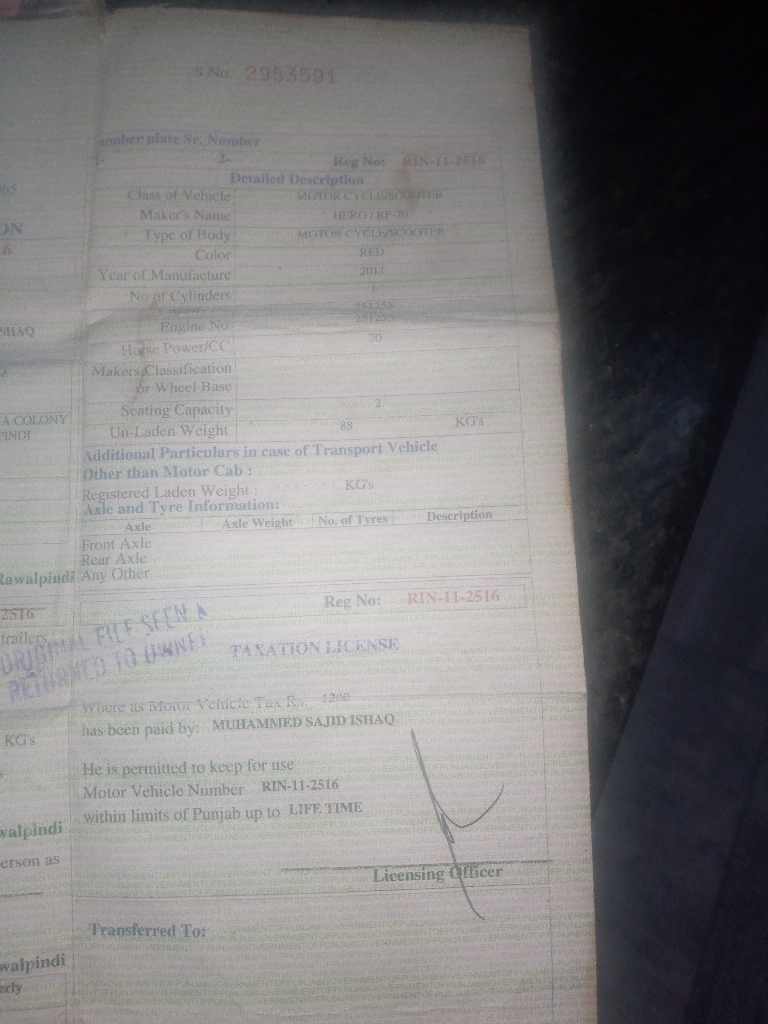 S No. 2953591
Number plate Sr. Number
1- 2- Reg No: RIN-11-2516
Detailed Description
Class of Vehicle MOTOR CYCLE/SCOOTER
Maker's Name HERO / RF-70
Type of Body MOTOR CYCLE/SCOOTER
Color RED
Year of Manufacture 2011
No of Cylinders 1
251255
Engine No 251255
Horse Power/CC 70
Makers Classification
or Wheel Base
Seating Capacity 2
Un-Laden Weight 88 KG's
Additional Particulars in case of Transport Vehicle
Other than Motor Cab :
Registered Laden Weight : KG's
Axle and Tyre Information:
Axle Axle Weight No. of Tyres Description
Front Axle
Rear Axle
Any Other
Reg No: RIN-11-2516
TAXATION LICENSE
Where as Motor Vehicle Tax Rs. 1200
has been paid by: MUHAMMED SAJID ISHAQ
He is permitted to keep for use
Motor Vehicle Number RIN-11-2516
within limits of Punjab up to LIFE TIME
Licensing Officer
Transferred To:
ON
6
SHAQ
A COLONY
PINDI
Rawalpindi
2516
trailers
ORIGINAL FILE SEEN &
RETURNED TO OWNER
KG's
walpindi
erson as
walpindi
erly